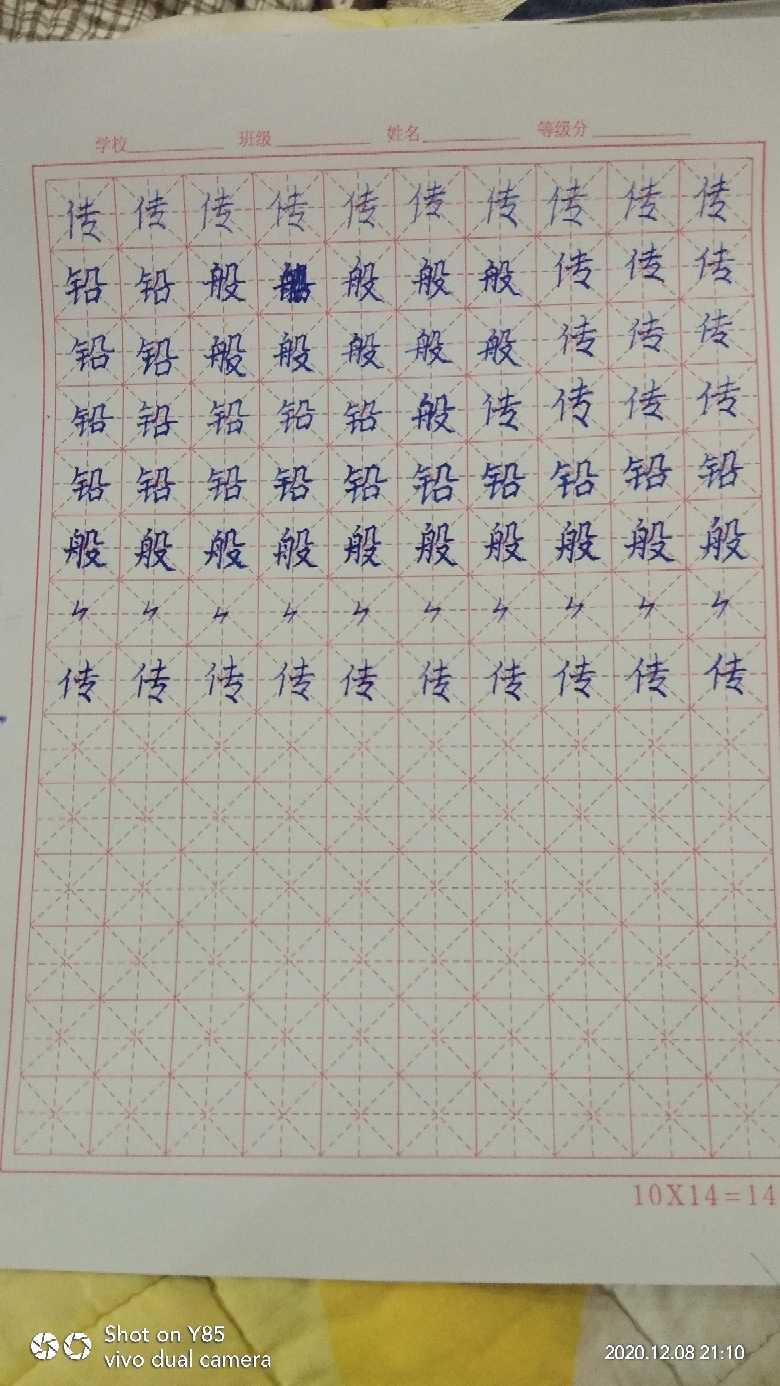 学校 班级 姓名 等级分
传 传 传 传 传 传 传 传 传 传
铅 铅 般 般 般 般 传 传 传
铅 铅 般 般 般 般 般 传 传 传
铅 铅 铅 铅 铅 般 传 传 传 传
铅 铅 铅 铅 铅 铅 铅 铅 铅 铅
般 般 般 般 般 般 般 般 般 般
ㄣ ㄣ ㄣ ㄣ ㄣ ㄣ ㄣ ㄣ ㄣ ㄣ
传 传 传 传 传 传 传 传 传 传
10X14=14
Shot on Y85
vivo dual camera
2020.12.08 21:10